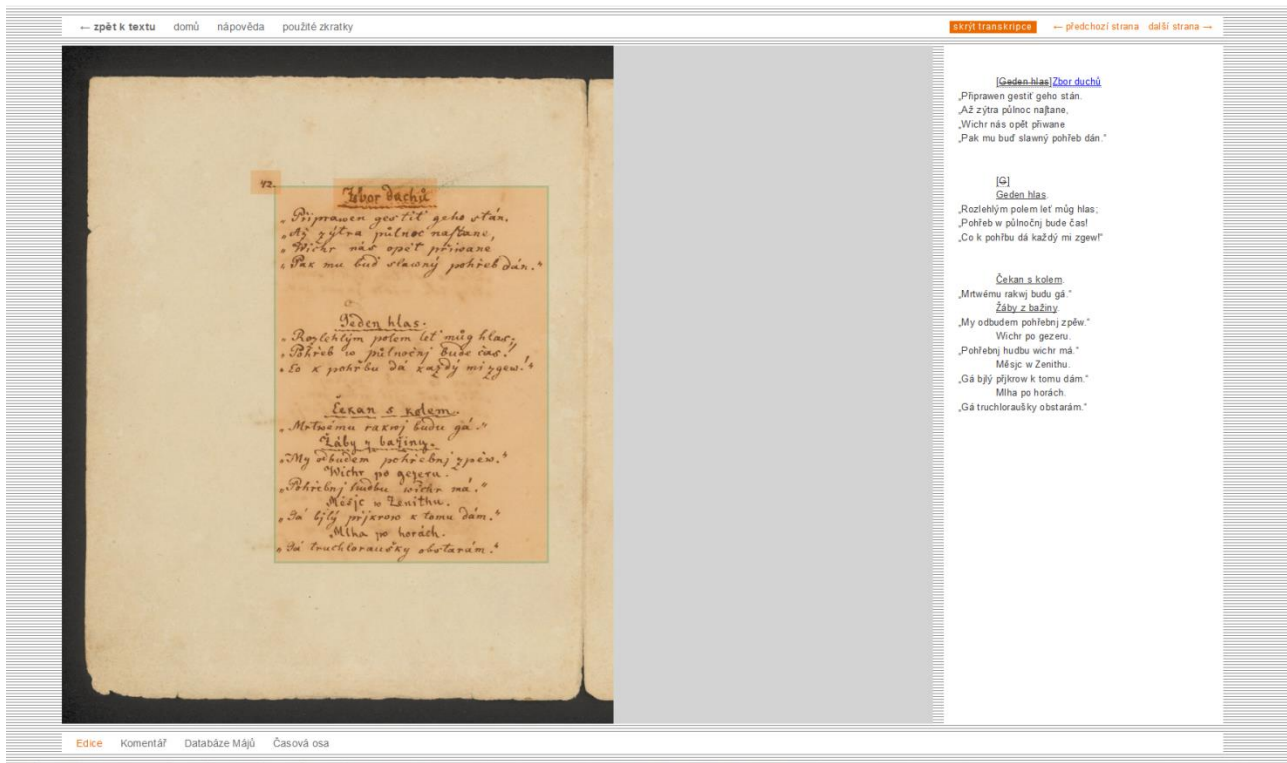 ← zpět k textu domů nápověda použité zkratky
skrýt transkripce ← předchozí strana další strana →
42.
Zbor duchů
„Připrawen gestiť geho stán.
„Až zýtra půlnoc naſtane,
„Wichr nás opět přiwane
„Pak mu buď slawný pohřeb dán.“
Geden hlas.
„Rozlehlým polem leť můg hlas;
„Pohřeb w půlnočnj bude čas!
„Co k pohřbu dá každý mi zgew!“
Čekan s kolem.
„Mrtwému rakwj budu gá.“
Žáby z bažiny.
„My odbudem pohřebnj zpěw.“
Wichr po gezeru.
„Pohřebnj hudbu wichr má.“
Měsjc w Zenithu.
„Gá bjlý přjkrow k tomu dám.“
Mlha po horách.
„Gá truchloraušky obstarám.“
[Geden hlas]Zbor duchů
„Připrawen gestiť geho stán.
„Až zýtra půlnoc naſtane,
„Wichr nás opět přiwane
„Pak mu buď slawný pohřeb dán.“
[G]
Geden hlas.
„Rozlehlým polem leť můg hlas;
„Pohřeb w půlnočnj bude čas!
„Co k pohřbu dá každý mi zgew!“
Čekan s kolem.
„Mrtwému rakwj budu gá.“
Žáby z bažiny.
„My odbudem pohřebnj zpěw.“
Wichr po gezeru.
„Pohřebnj hudbu wichr má.“
Měsjc w Zenithu.
„Gá bjlý přjkrow k tomu dám.“
Mlha po horách.
„Gá truchloraušky obstarám.“
Edice Komentář Databáze Májů Časová osa